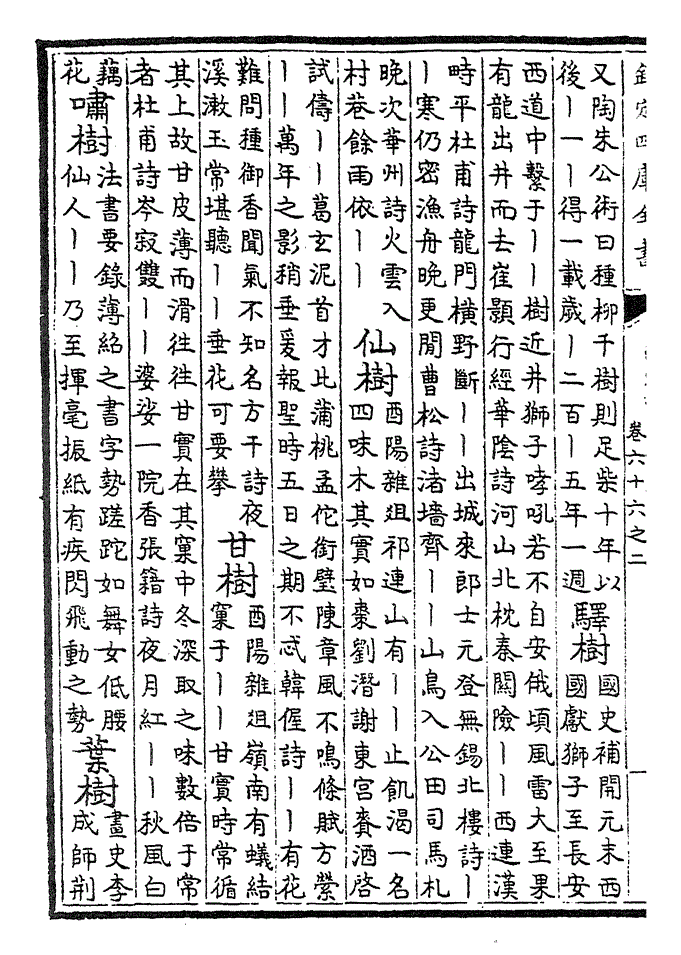 欽定四庫全書
卷六十六之二
又陶朱公術曰種柳千樹則足柴十年以
後丨一丨得一載歲丨二百丨五年一週
驛樹
國史補開元末西
國獻獅子至長安
西道中繫于丨丨樹近井獅子哮吼若不自安俄頃風雷大至果
有龍出井而去崔顥行經華陰詩河山北枕秦關險丨丨西連漢
時平杜甫詩龍門橫野斷丨丨出城來郎士元登無錫北樓詩丨
丨寒仍密漁舟晚更閒曹松詩渚墻齊丨丨山鳥入公田司馬札
晚次華州詩火雲入
村巷餘雨依丨丨
仙樹
酉陽雜俎祁連山有丨丨止飢渴一名
四味木其實如棗劉潛謝東宮賚酒啓
試儔丨丨葛玄泥首才比蒲桃孟佗銜璧陳章風不鳴條賦方縈
丨丨萬年之影稍垂爰報聖時五日之期不忒韓偓詩丨丨有花
難問種御香聞氣不知名方干詩夜
溪漱玉常堪聽丨丨垂花可要攀
甘樹
酉陽雜俎嶺南有蟻結
窠于丨丨甘實時常循
其上故甘皮薄而滑徃徃甘實在其窠中冬深取之味數倍于常
者杜甫詩岑寂雙丨丨婆娑一院香張籍詩夜月紅丨丨秋風白
藕
花
嘯樹
法書要錄薄紹之書字勢蹉跎如舞女低腰
仙人丨丨乃至揮毫振紙有疾閃飛動之勢
葉樹
畫史李
成師荆